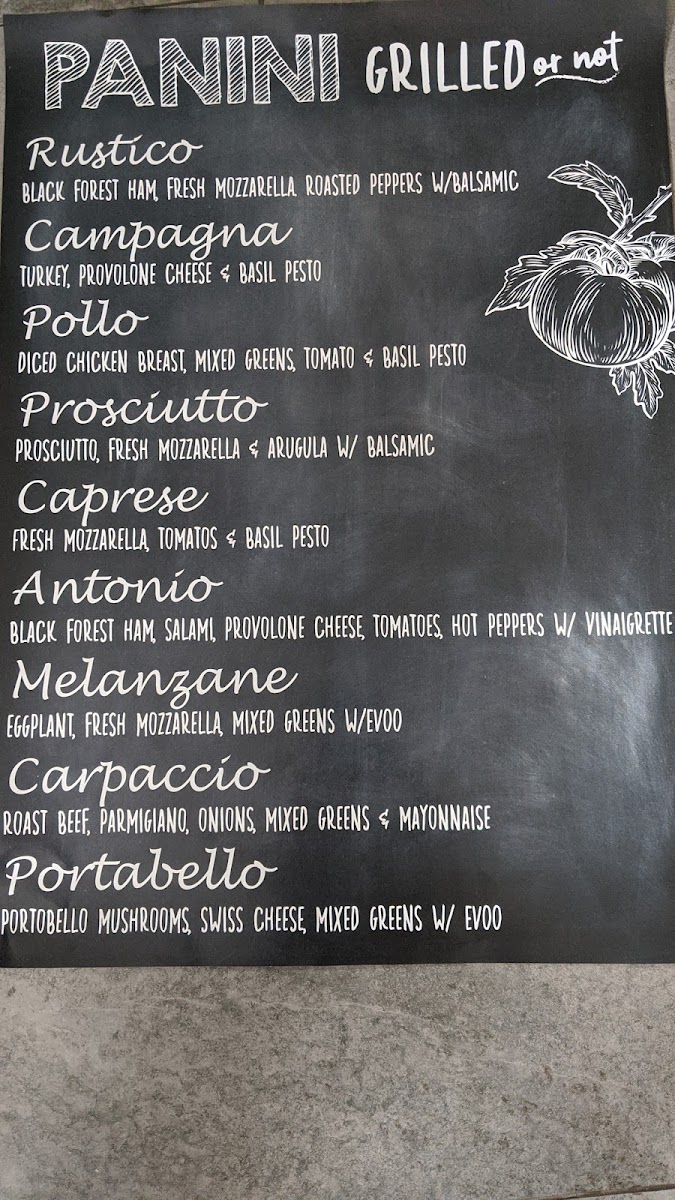 PANINI GRILLED or not
Rustico
BLACK FOREST HAM, FRESH MOZZARELLA. ROASTED PEPPERS W/BALSAMIC
Campagna
TURKEY, PROVOLONE CHEESE & BASIL PESTO
Pollo
DICED CHICKEN BREAST, MIXED GREENS, TOMATO & BASIL PESTO
Prosciutto
PROSCIUTTO, FRESH MOZZARELLA & ARUGULA W/ BALSAMIC
Caprese
FRESH MOZZARELLA, TOMATOS & BASIL PESTO
Antonio
BLACK FOREST HAM, SALAMI, PROVOLONE CHEESE, TOMATOES, HOT PEPPERS W/ VINAIGRETTE
Melanzane
EGGPLANT, FRESH MOZZARELLA, MIXED GREENS W/EVOO
Carpaccio
ROAST BEEF, PARMIGIANO, ONIONS, MIXED GREENS & MAYONNAISE
Portabello
PORTOBELLO MUSHROOMS, SWISS CHEESE, MIXED GREENS W/ EVOO